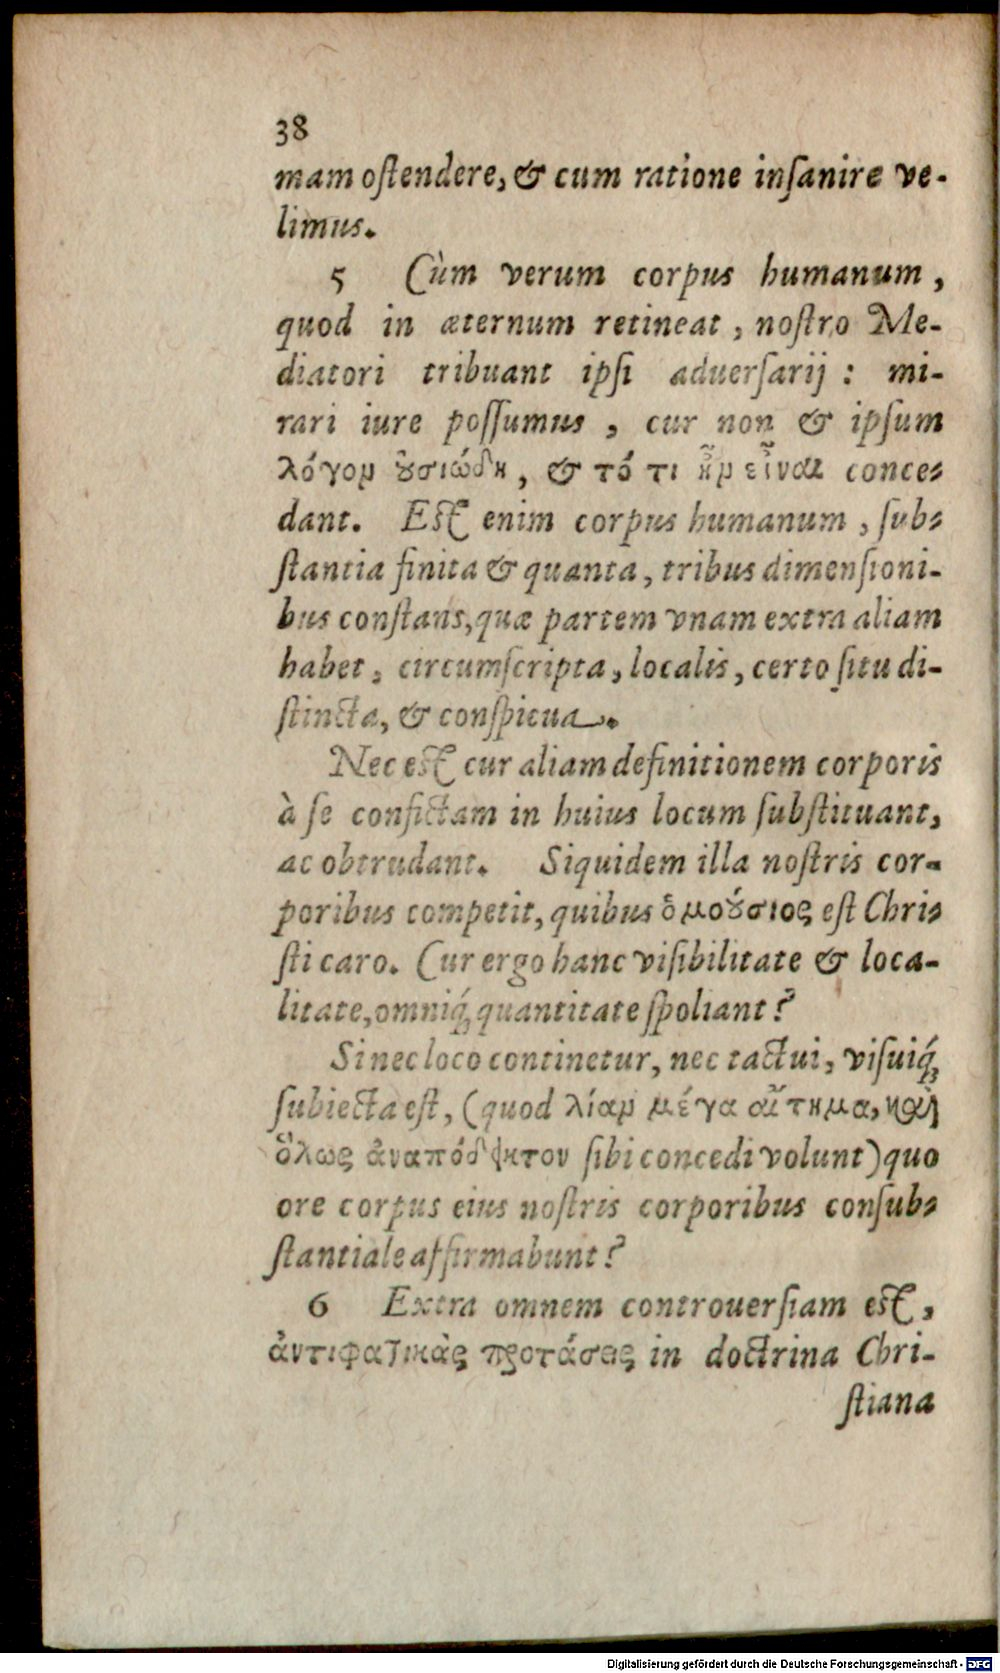 38
mam ostendere, & cum ratione insanire ve-
limus.
5 Cùm verum corpus humanum,
quod in æternum retineat, nostro Me-
diatori tribuant ipsi aduersarij: mi-
rari iure possumus, cur non & ipsum
λόγομ ȣ̓σιώδη, & τό τι ἦμ εἶναι conce-
dant. Est enim corpus humanum, sub-
stantia finita & quanta, tribus dimensioni-
bus constans, quæ partem vnam extra aliam
habet, circumscripta, localis, certo situ di-
stincta, & conspicua.
Nec est cur aliam definitionem corporis
à se confictam in huius locum substituant,
ac obtrudant. Siquidem illa nostris cor-
poribus competit, quibus ὁμοȣ́σιος est Chri-
sti caro. Cur ergo hanc visibilitate & loca-
litate, omniq́; quantitate spoliant?
Si nec loco continetur, nec tactui, visuiq́;
subiecta est, (quod λίαμ μέγα αἴτημα, καὶ
ὅλως ἀναπόδεικτον sibi concedi volunt) quo
ore corpus eius nostris corporibus consub-
stantiale affirmabunt?
6 Extra omnem controuersiam est,
ἀντιφατικὰς προτάσεις in doctrina Chri-
stiana
Digitalisierung gefördert durch die Deutsche Forschungsgemeinschaft - DFG